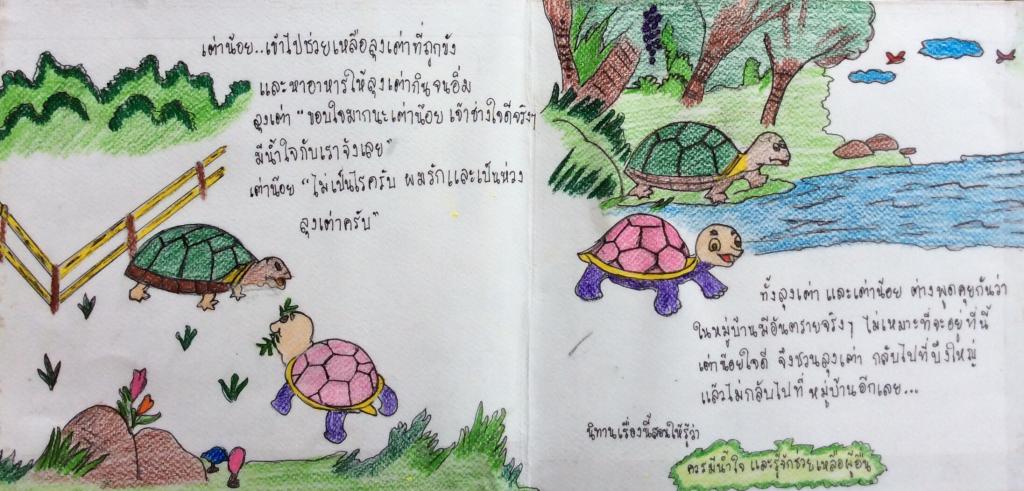 เต่าน้อย..เข้าไปช่วยเหลือลุงเต่าที่ถูกขัง
และหาอาหารให้ลุงเต่ากินจนอิ่ม
ลุงเต่า "ขอบใจมากนะเต่าน้อย เจ้าช่างใจดีจริงๆ
มีน้ำใจกับเราจังเลย"
เต่าน้อย "ไม่เป็นไรครับ ผมรักและเป็นห่วง
ลุงเต่าครับ"
ทั้งลุงเต่า และเต่าน้อย ต่างพูดคุยกันว่า
ในหมู่บ้านมีอันตรายจริงๆ ไม่เหมาะที่จะอยู่ที่นี่
เต่าน้อยใจดี จึงชวนลุงเต่า กลับไปที่บึงใหญ่
แล้วไม่กลับไปที่ หมู่บ้านอีกเลย...
นิทานเรื่องนี้สอนให้รู้ว่า
ควรมีน้ำใจ และรู้จักช่วยเหลือผู้อื่น